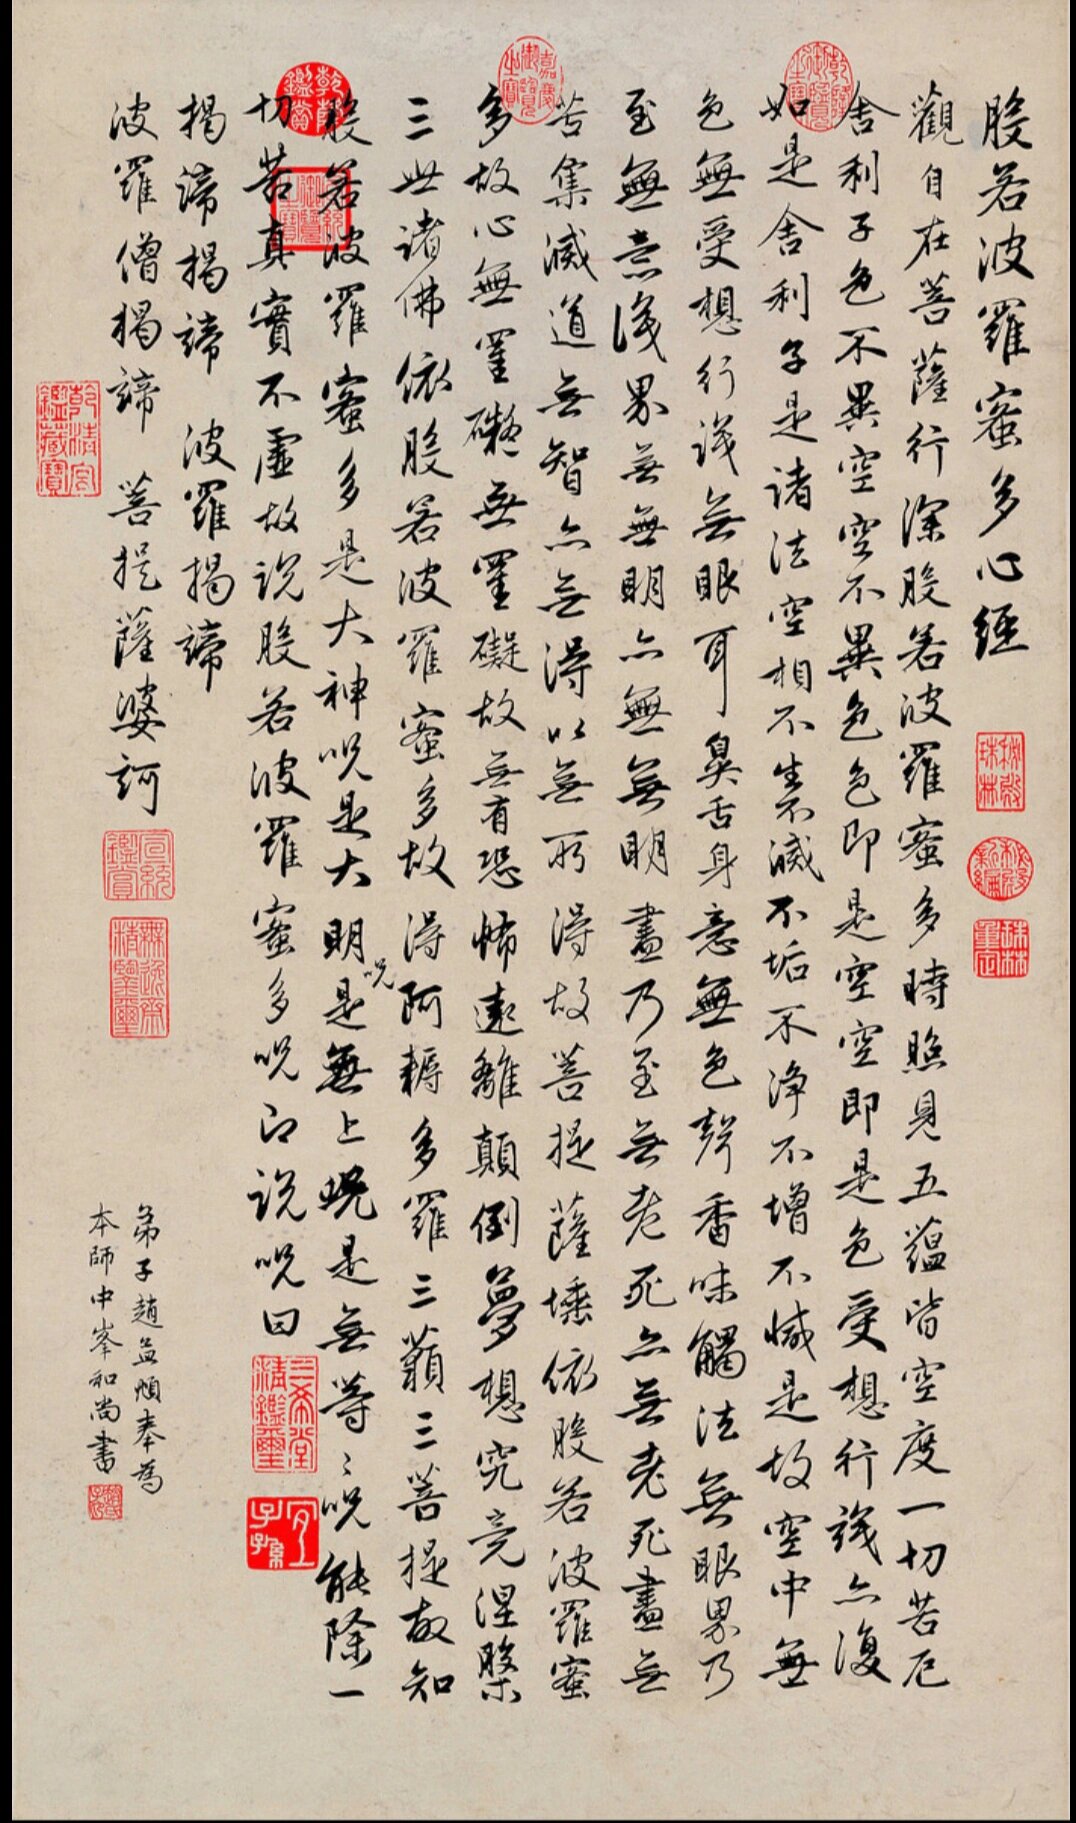 般若波羅蜜多心經
觀自在菩薩行深般若波羅蜜多時照見五蘊皆空度一切苦厄
舍利子色不異空空不異色色即是空空即是色受想行識亦復
如是舍利子是諸法空相不生不滅不垢不淨不增不減是故空中無
色無受想行識無眼耳鼻舌身意無色聲香味觸法無眼界乃
至無意識界無無明亦無無明盡乃至無老死亦無老死盡無
苦集滅道無智亦無得以無所得故菩提薩埵依般若波羅蜜
多故心無罣礙無罣礙故無有恐怖遠離顛倒夢想究竟涅槃
三世諸佛依般若波羅蜜多故得阿耨多羅三藐三菩提故知
般若波羅蜜多是大神呪是大明呪是無上呪是無等〻呪能除一
切苦真實不虛故說般若波羅蜜多呪即說呪曰
揭諦揭諦 波羅揭諦
波羅僧揭諦 菩提薩婆訶
弟子趙孟頫奉為
本師中峯和尚書
秘殿珠林
秘殿新編
珠林重定
乾隆御覽之寶
嘉慶御覽之寶
乾隆鑑賞
宣統御覽之寶
三希堂精鑑璽
宜子孫
宣統鑑賞
無逸齋精鑒璽
乾清宮鑑藏寶